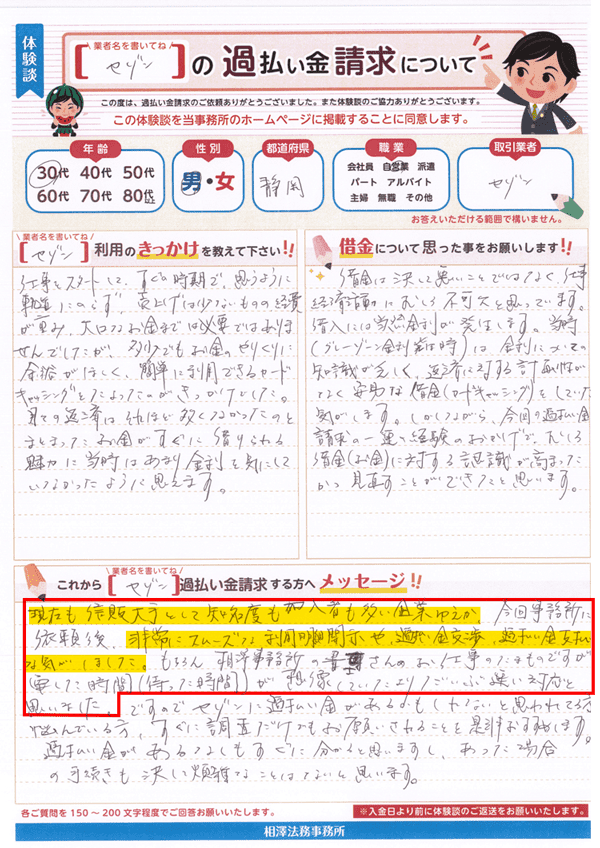 体験談
業者名を書いてね
[セゾン]の過払い金請求について
この度は、過払い金請求のご依頼ありがとうございました。また体験談のご協力ありがとうございます。
この体験談を当事務所のホームページに掲載することに同意します。
年齢
30代 40代 50代
60代 70代 80代以上
性別
男・女
都道府県
静岡
職業
会社員 自営業 派遣
パート アルバイト
主婦 無職 その他
取引業者
セゾン
お答えいただける範囲で構いません。
業者名を書いてね
[セゾン]利用のきっかけを教えて下さい!!
仕事をスタートして、すぐの時期で、思うように
軌道にのらず、売上げは少ないものの経費
が重み、大口なお金までは必要ではありま
せんでしたが、多少でもお金のやりくりに
余裕がほしく、簡単に利用できるカード
キャッシングをしたことがきっかけでした。
月々の返済はそれほど多くなかったのと
まとまったお金がすぐに借りられる
魅力に当時はあまり金利を気にして
いなかったように思えます。
借金について思った事をお願いします!!
借金は決して悪いことではなく仕事
経済活動にむしろ不可欠と思っています。
借入には当然金利が発生します。当時
(グレーゾーン金利発生時)は金利についての
知識が乏しく、返済に対する計画性が
なく安易な借金(カードキャッシング)をしていた
気がします。しかしながら、今回の過払い金
請求の一連の経験のおかげで、むしろ
借金(お金)に対する認識が高まった
かつ見直すことができたこと思います。
業者名を書いてね
これから[セゾン]過払い金請求する方へメッセージ!!
現在も信販大手として知名度も加入者も多い企業ゆえか、今回事務所に
依頼後、非常にスムーズな利用明細開示や、過払い金交渉、過払い金支払い
な気がしました。もちろん、相澤事務所の皆さんのお仕事のたまものですが
(要した時間)(待った時間)が想像していたよりだいぶ速い対応と
思いました。ですのでセゾンに過払い金があるかもしれないと思われてる方
悩んでいる方、すぐに調査だけでもお願いされることを是非おすすめします。
過払い金があるなしもすぐに分かると思いますし、あった場合
の手続きも決して煩雑なことはないと思います。
各ご質問を150～200文字程度でご回答お願いいたします。
※入金日より前に体験談のご返送をお願いいたします。
相澤法務事務所